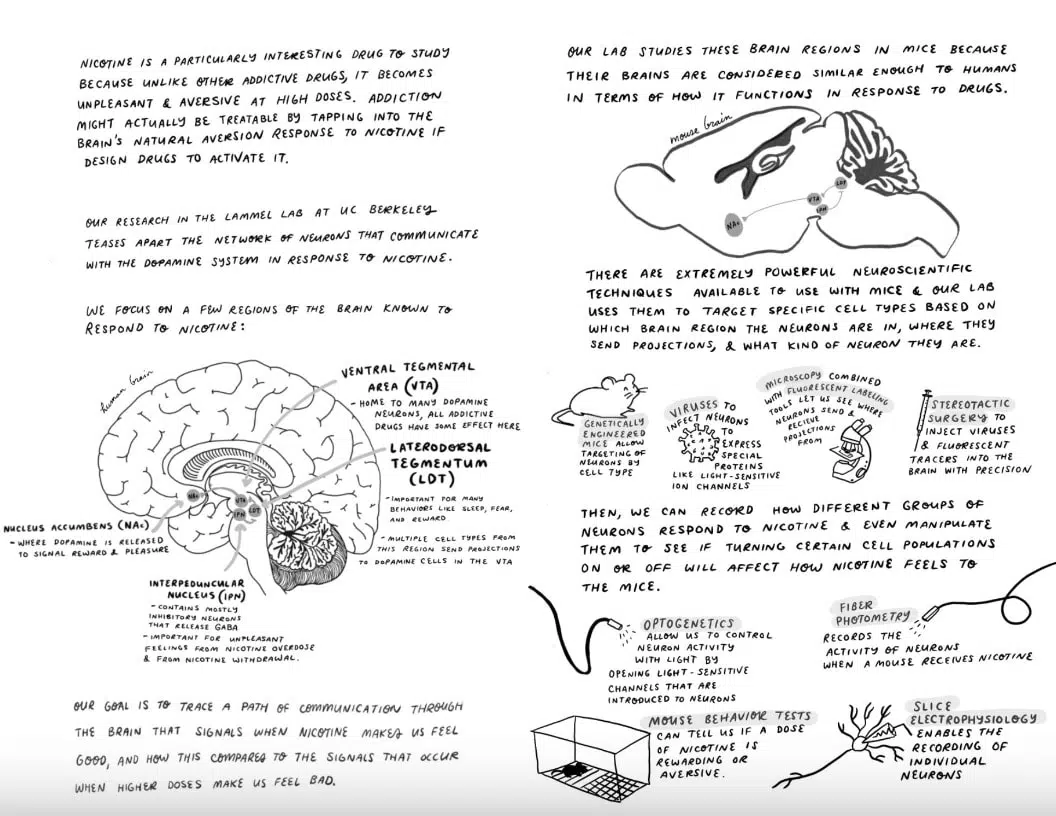 NICOTINE IS A PARTICULARLY INTERESTING DRUG TO STUDY
BECAUSE UNLIKE OTHER ADDICTIVE DRUGS, IT BECOMES
UNPLEASANT & AVERSIVE AT HIGH DOSES. ADDICTION
MIGHT ACTUALLY BE TREATABLE BY TAPPING INTO THE
BRAIN'S NATURAL AVERSION RESPONSE TO NICOTINE IF
DESIGN DRUGS TO ACTIVATE IT.
OUR RESEARCH IN THE LAMMEL LAB AT UC BERKELEY
TEASES APART THE NETWORK OF NEURONS THAT COMMUNICATE
WITH THE DOPAMINE SYSTEM IN RESPONSE TO NICOTINE.
WE FOCUS ON A FEW REGIONS OF THE BRAIN KNOWN TO
RESPOND TO NICOTINE:
human brain
VENTRAL TEGMENTAL
AREA (VTA)
- HOME TO MANY DOPAMINE
NEURONS, ALL ADDICTIVE
DRUGS HAVE SOME EFFECT HERE
LATERODORSAL
TEGMENTUM
(LDT)
- IMPORTANT FOR MANY
BEHAVIORS LIKE SLEEP, FEAR,
AND REWARD.
- MULTIPLE CELL TYPES FROM
THIS REGION SEND PROJECTIONS
TO DOPAMINE CELLS IN THE VTA
NAc
VTA
IPN
LDT
NUCLEUS ACCUMBENS (NAc)
- WHERE DOPAMINE IS RELEASED
TO SIGNAL REWARD & PLEASURE
INTERPEDUNCULAR
NUCLEUS (IPN)
- CONTAINS MOSTLY
INHIBITORY NEURONS
THAT RELEASE GABA
- IMPORTANT FOR UNPLEASANT
FEELINGS FROM NICOTINE OVERDOSE
& FROM NICOTINE WITHDRAWAL.
OUR GOAL IS TO TRACE A PATH OF COMMUNICATION THROUGH
THE BRAIN THAT SIGNALS WHEN NICOTINE MAKES US FEEL
GOOD, AND HOW THIS COMPARES TO THE SIGNALS THAT OCCUR
WHEN HIGHER DOSES MAKE US FEEL BAD.
OUR LAB STUDIES THESE BRAIN REGIONS IN MICE BECAUSE
THEIR BRAINS ARE CONSIDERED SIMILAR ENOUGH TO HUMANS
IN TERMS OF HOW IT FUNCTIONS IN RESPONSE TO DRUGS.
mouse brain
NAc
VTA
IPN
LDT
THERE ARE EXTREMELY POWERFUL NEUROSCIENTIFIC
TECHNIQUES AVAILABLE TO USE WITH MICE & OUR LAB
USES THEM TO TARGET SPECIFIC CELL TYPES BASED ON
WHICH BRAIN REGION THE NEURONS ARE IN, WHERE THEY
SEND PROJECTIONS, & WHAT KIND OF NEURON THEY ARE.
GENETICALLY
ENGINEERED
MICE ALLOW
TARGETING OF
NEURONS BY
CELL TYPE
VIRUSES TO
INFECT NEURONS
TO
EXPRESS
SPECIAL
PROTEINS
LIKE LIGHT-SENSITIVE
ION CHANNELS
MICROSCOPY COMBINED
WITH FLUORESCENT LABELING
TOOLS LET US SEE WHERE
NEURONS SEND &
RECIEVE
PROJECTIONS
FROM
STEREOTACTIC
SURGERY TO
INJECT VIRUSES
& FLUORESCENT
TRACERS INTO THE
BRAIN WITH PRECISION
THEN, WE CAN RECORD HOW DIFFERENT GROUPS OF
NEURONS RESPOND TO NICOTINE & EVEN MANIPULATE
THEM TO SEE IF TURNING CERTAIN CELL POPULATIONS
ON OR OFF WILL AFFECT HOW NICOTINE FEELS TO
THE MICE.
OPTOGENETICS
ALLOW US TO CONTROL
NEURON ACTIVITY
WITH LIGHT BY
OPENING LIGHT-SENSITIVE
CHANNELS THAT ARE
INTRODUCED TO NEURONS
FIBER
PHOTOMETRY
RECORDS THE
ACTIVITY OF NEURONS
WHEN A MOUSE RECEIVES NICOTINE
MOUSE BEHAVIOR TESTS
CAN TELL US IF A DOSE
OF NICOTINE IS
REWARDING OR
AVERSIVE.
SLICE
ELECTROPHYSIOLOGY
ENABLES THE
RECORDING OF
INDIVIDUAL
NEURONS